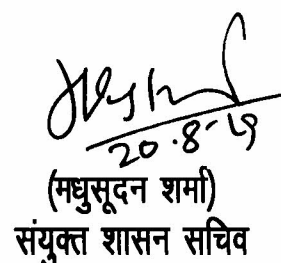 20.8-19
(मधुसूदन शर्मा)
संयुक्त शासन सचिव